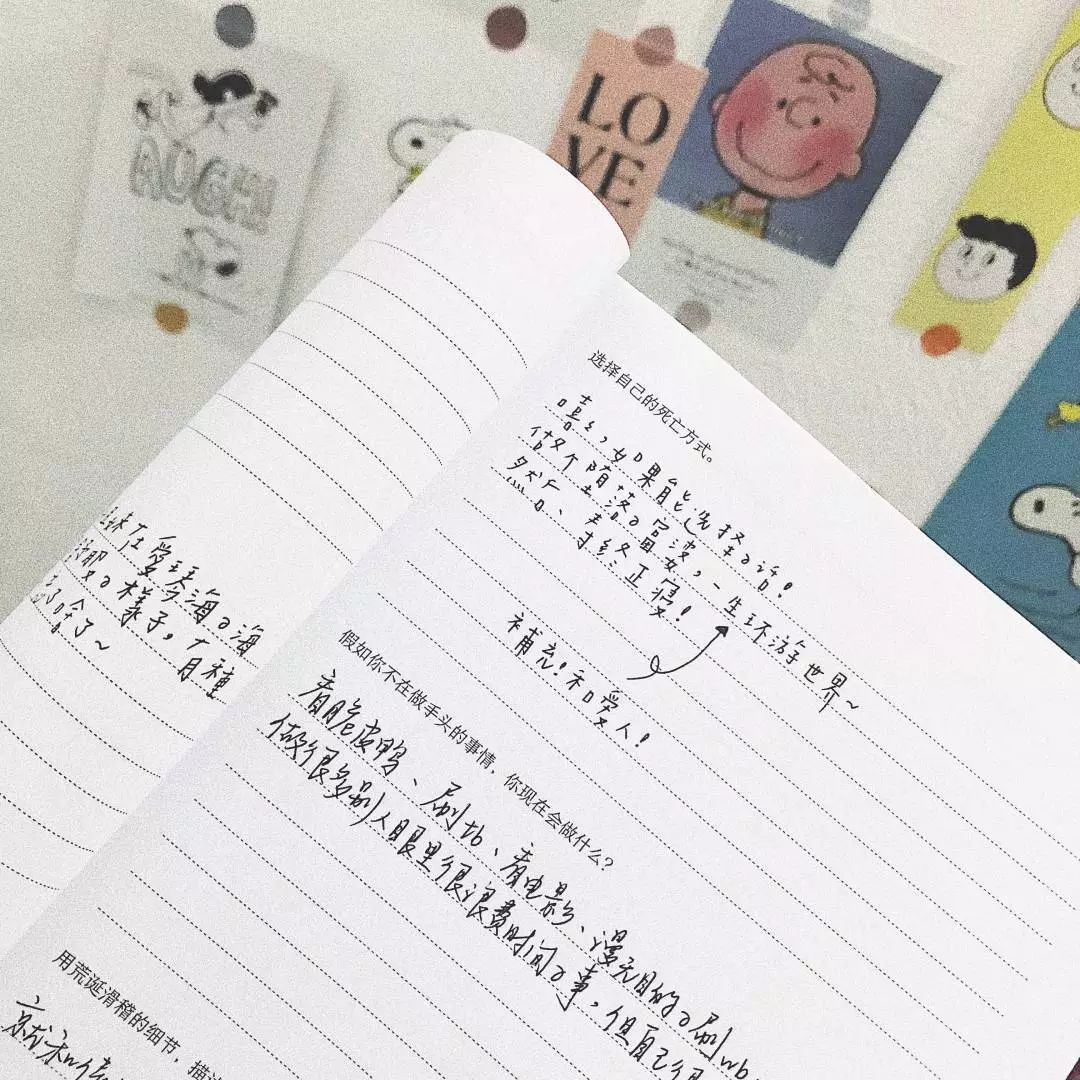 AUGH!
LO
VE
选择自己的死亡方式。
嘻嘻,如果能选择的话!
做个堕落的富婆,一生环游世界~
然后、寿终正寝!
補充!和愛人!
假如你不在做手头的事情,你现在会做什么?
看脆皮鸭、刷tb、看电影、漫无目的的刷wb
做很多别人眼里很浪费时间的事,但自己很
用荒诞滑稽的细节,描述
就和
在愛琴海の海
の樣子,有種
了~